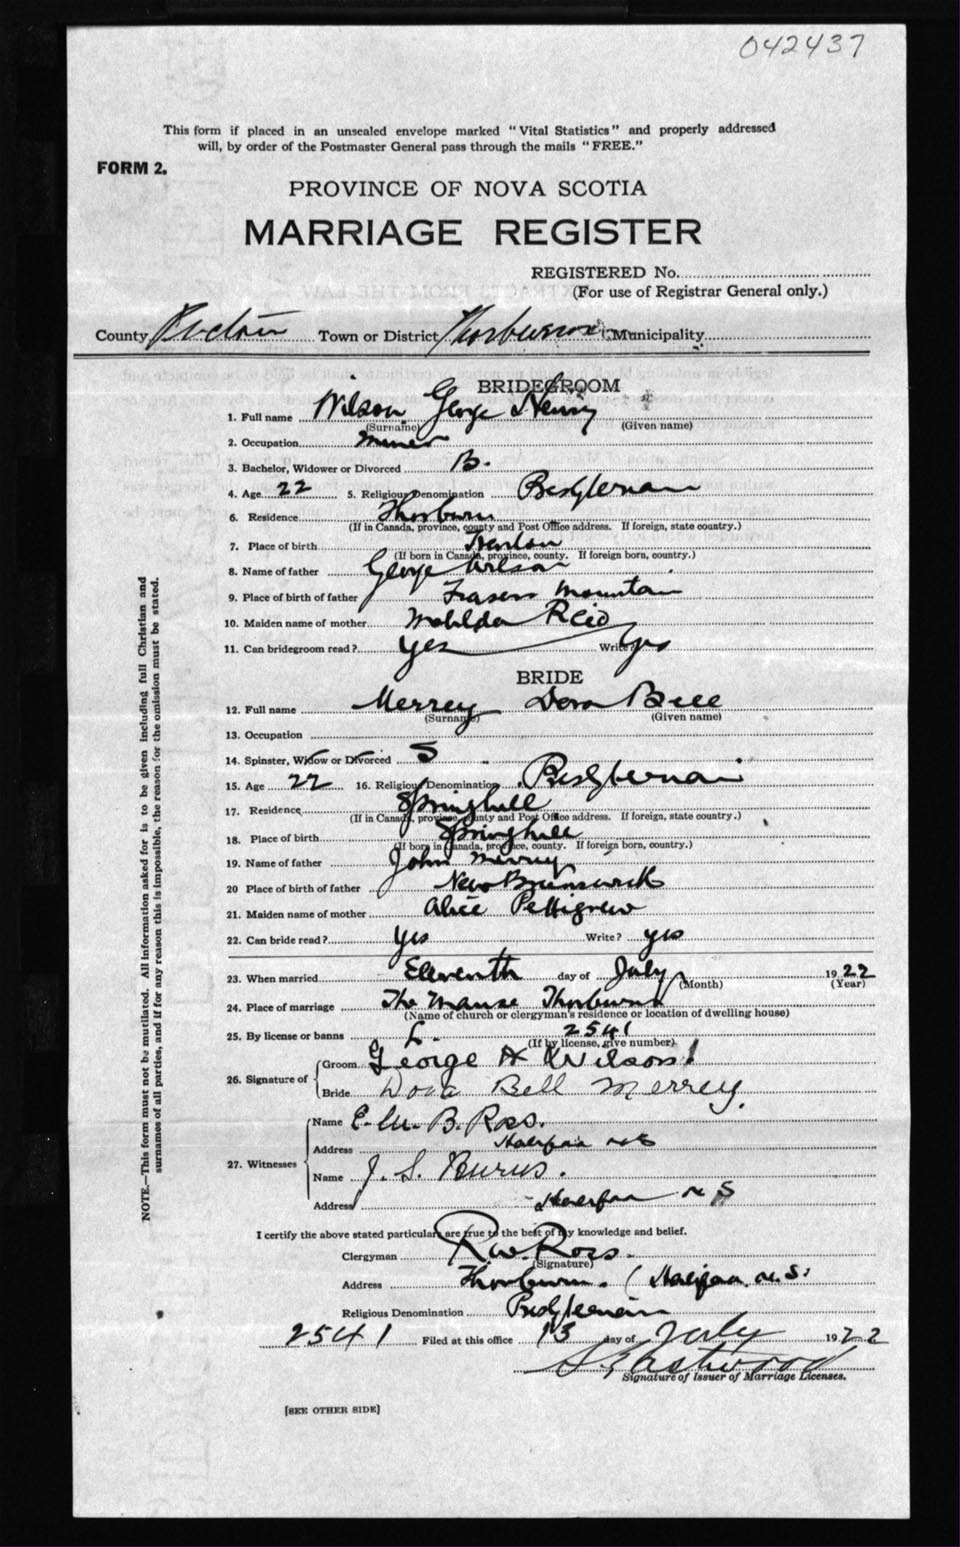 042437
This form if placed in an unsealed envelope marked "Vital Statistics" and properly addressed
will, by order of the Postmaster General pass through the mails "FREE."
FORM 2.
PROVINCE OF NOVA SCOTIA
MARRIAGE REGISTER
REGISTERED No.
(For use of Registrar General only.)
County Pictou Town or District Thorburn Municipality
BRIDEGROOM
1. Full name Wilson George Henry
(Surname) (Given name)
2. Occupation Miner
3. Bachelor, Widower or Divorced B.
4. Age 22 5. Religious Denomination Presbyterian
6. Residence Thorburn
(If in Canada, province, county and Post Office address. If foreign, state country.)
7. Place of birth Trenton
(If born in Canada, province, county. If foreign born, country.)
8. Name of father George Wilson
9. Place of birth of father Frasers Mountain
10. Maiden name of mother Matilda Reid
11. Can bridegroom read? Yes Write? Yes
BRIDE
12. Full name Merrey Dora Bell
(Surname) (Given name)
13. Occupation
14. Spinster, Widow or Divorced S
15. Age 22 16. Religious Denomination Presbyterian
17. Residence Springhill
(If in Canada, province, county and Post Office address. If foreign, state country.)
18. Place of birth Springhill
(If born in Canada, province, county. If foreign born, country.)
19. Name of father John Merrey
20 Place of birth of father New Brunswick
21. Maiden name of mother Alice Pettigrew
22. Can bride read? Yes Write? yes
23. When married Eleventh day of July 1922
(Month) (Year)
24. Place of marriage The Manse Thorburn
(Name of church or clergyman's residence or location of dwelling house)
25. By license or banns L. 2541
(If by license, give number)
26. Signature of
Groom George H Wilson
Bride Dora Bell Merrey.
27. Witnesses
Name E. M. B. Ross.
Address Halifax NS
Name J. S. Burns.
Address Halifax N S
I certify the above stated particulars are true to the best of my knowledge and belief.
Clergyman R. W. Ross.
(Signature)
Address Thorburn. (Halifax N.S.
Religious Denomination Presbyterian
2541 Filed at this office 13 day of July 1922
Eastwood
Signature of Issuer of Marriage Licenses.
[SEE OTHER SIDE]
NOTE.—This form must not be mutilated. All information asked for is to be given including full Christian and
surnames of all parties, and if for any reason this is impossible, the reason for the omission must be stated.